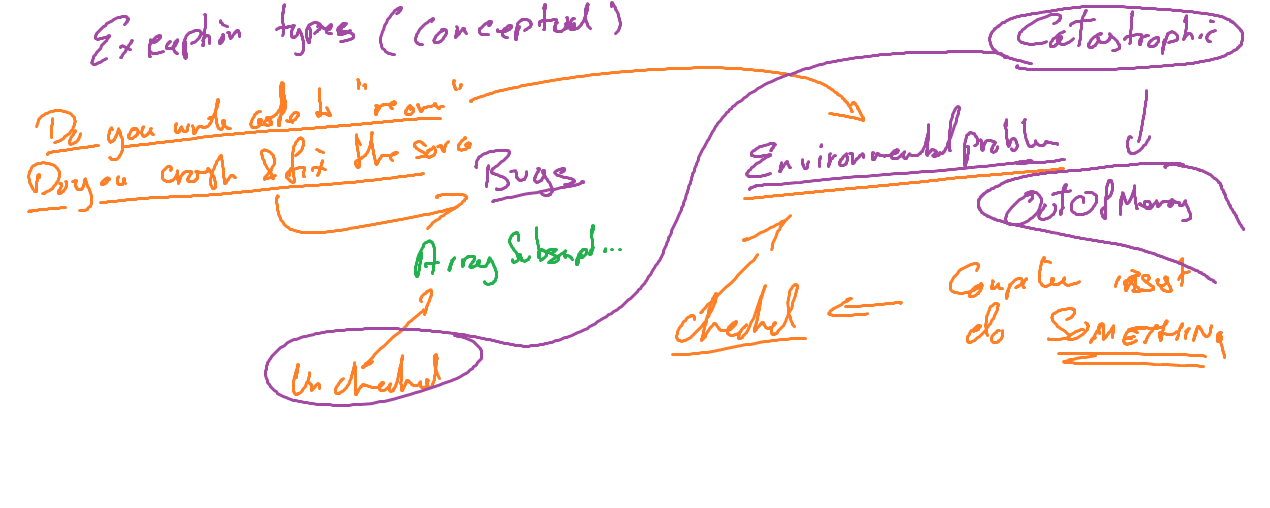 Exception types (conceptual)
Catastrophic
Do you write code to "recover"
Do you crash & fix the source
Bugs
Environmental problem
OutOfMemory
Array Subscript...
Compiler insist
do SOMETHING
checked
Unchecked